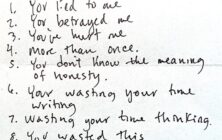 1. You lied to me
2. You betrayed me
3. You've hurt me
4. More than once.
5. You don't know the meaning
of honesty.
6. Your wasting your time
writing
7. Wasting your time thinking.
8. You wasted this